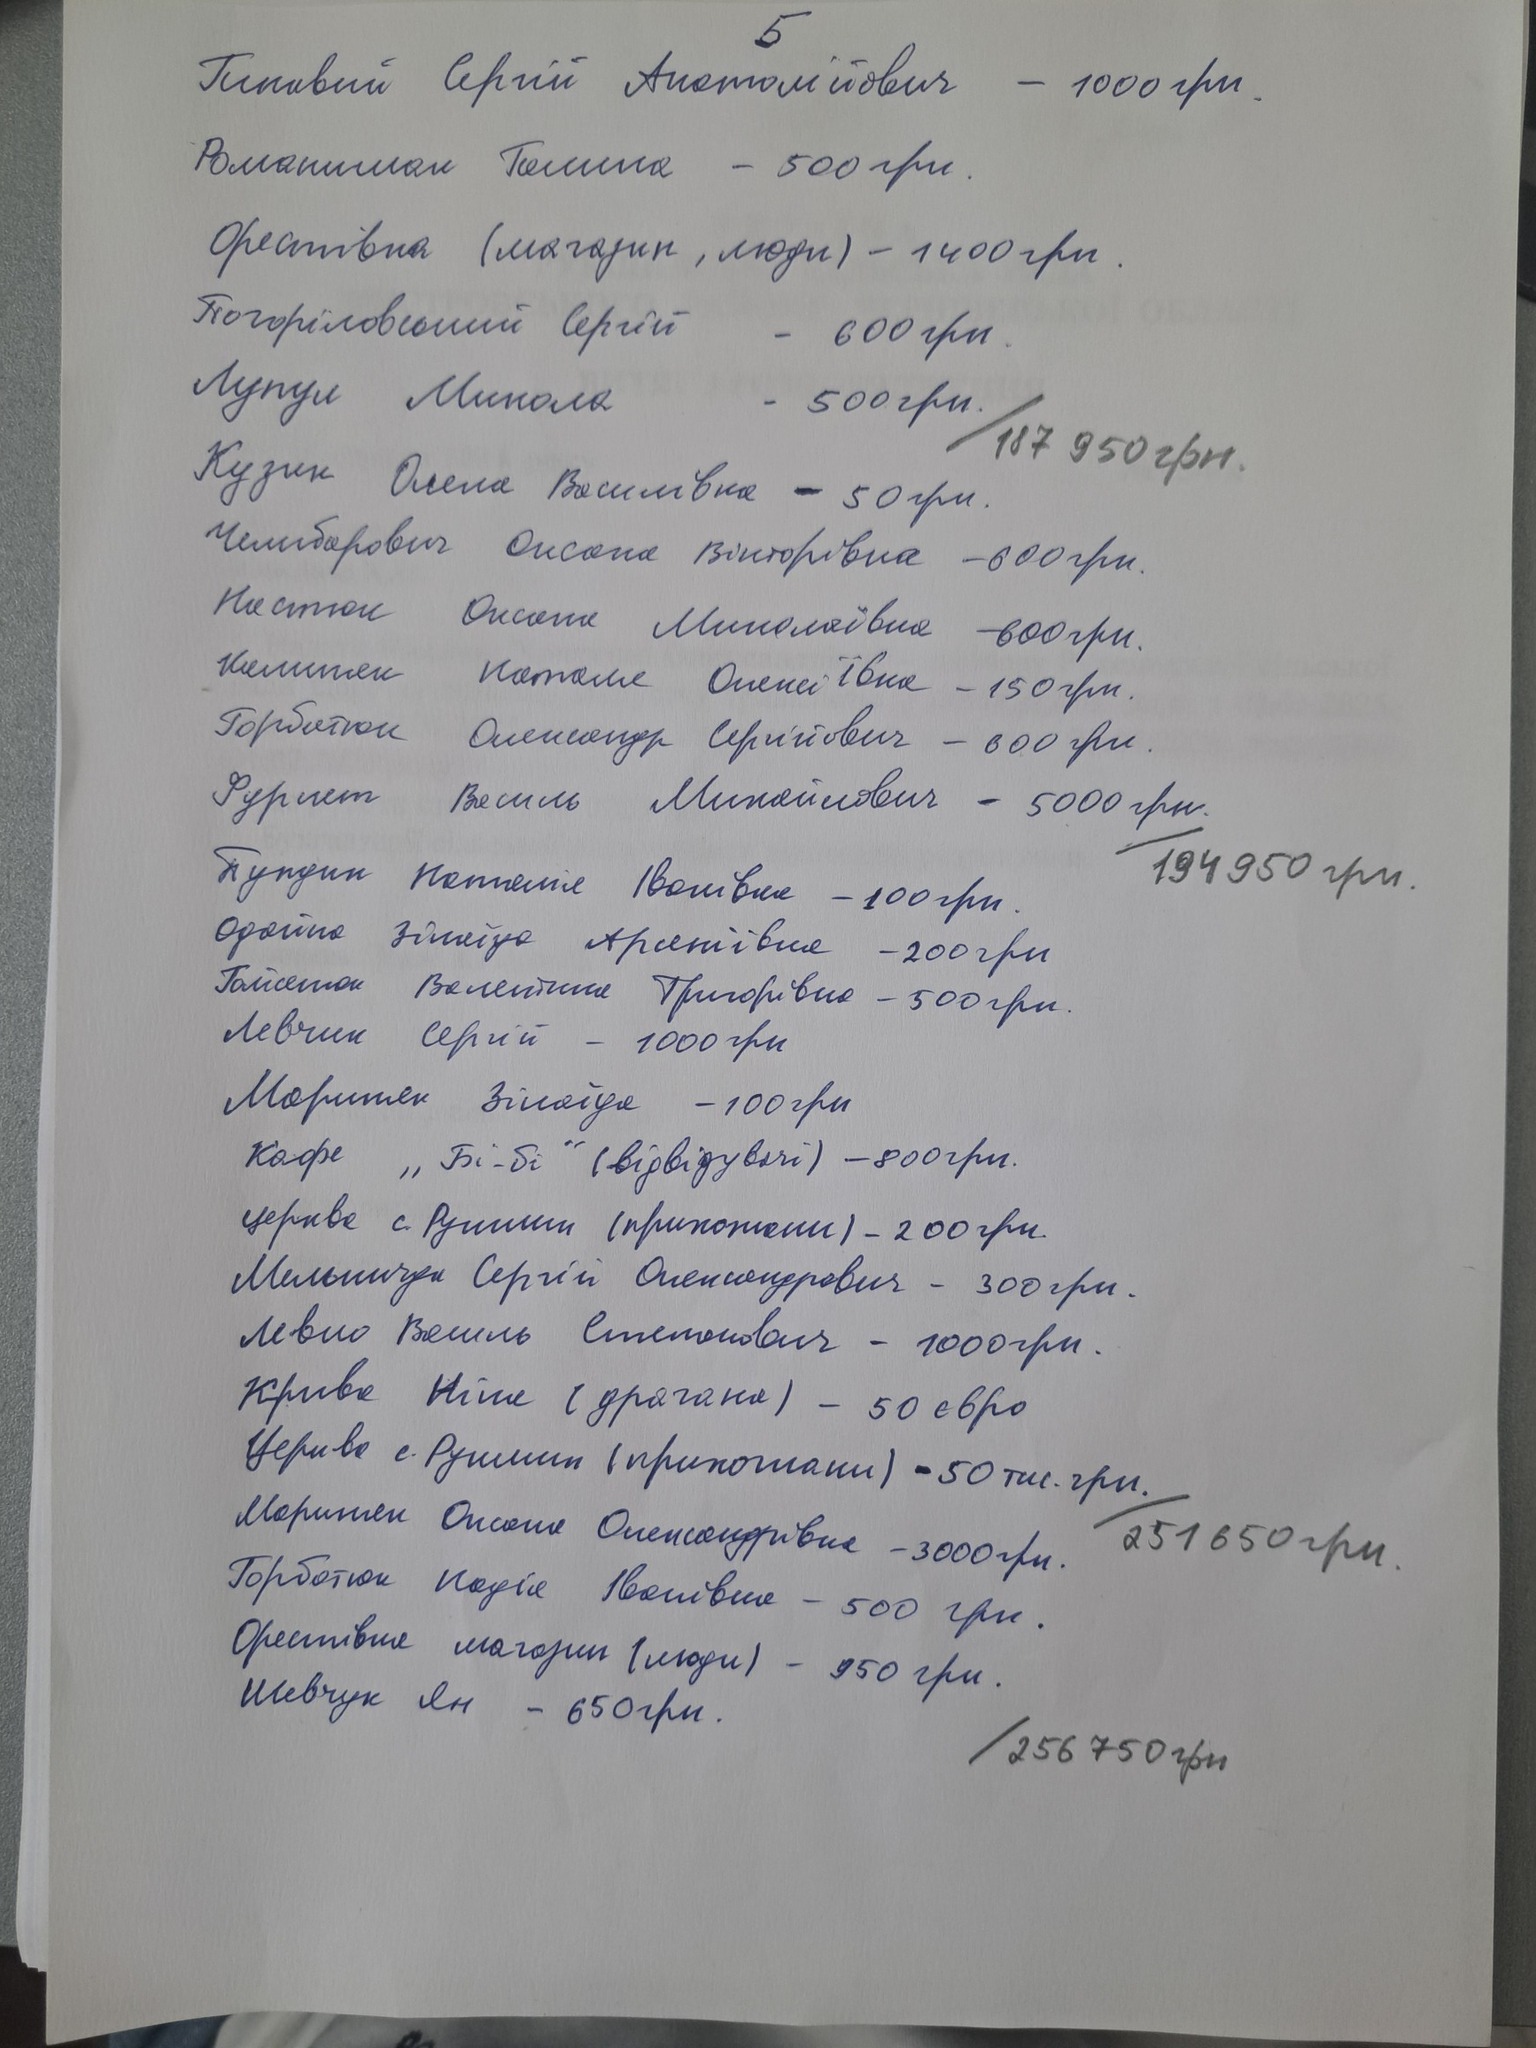 5
Гиковий Сергій Анатолійович - 1000 грн.
Романишак Галина - 500 грн.
Орестівка (магазин, люди) - 1400 грн.
Погоріловський Сергій - 600 грн.
Лупул Микола - 500 грн.
/187 950 грн.
Кузик Олена Василівна - 50 грн.
Челибарович Оксана Вікторівна - 600 грн.
Настюк Оксана Миколаївна - 600 грн.
Калиняк Наталя Олексіївна - 150 грн.
Горбатюк Олександр Сергійович - 600 грн.
Фурлет Василь Михайлович - 5000 грн.
/194 950 грн.
Пундик Наталія Іванівна - 100 грн.
Одайна Зінаїда Арсеніївна - 200 грн
Гайсенюк Валентина Григорівна - 500 грн.
Левчик Сергій - 1000 грн
Мариняк Зінаїда - 100 грн
Кафе „Бі-бі" (відвідувачі) - 800 грн.
церква с. Рухлин (прихожани) - 200 грн.
Мельничук Сергій Олександрович - 300 грн.
Левко Василь Степанович - 1000 грн.
Крива Ніна (драгана) - 50 євро
Церква с. Рухлин (прихожани) - 50 тис. грн.
/251 650 грн.
Мариняк Оксана Олександрівна - 3000 грн.
Горбатюк Надія Іванівна - 500 грн.
Орестівка магазин (люди) - 950 грн.
Шевчук Ян - 650 грн.
/256 750 грн